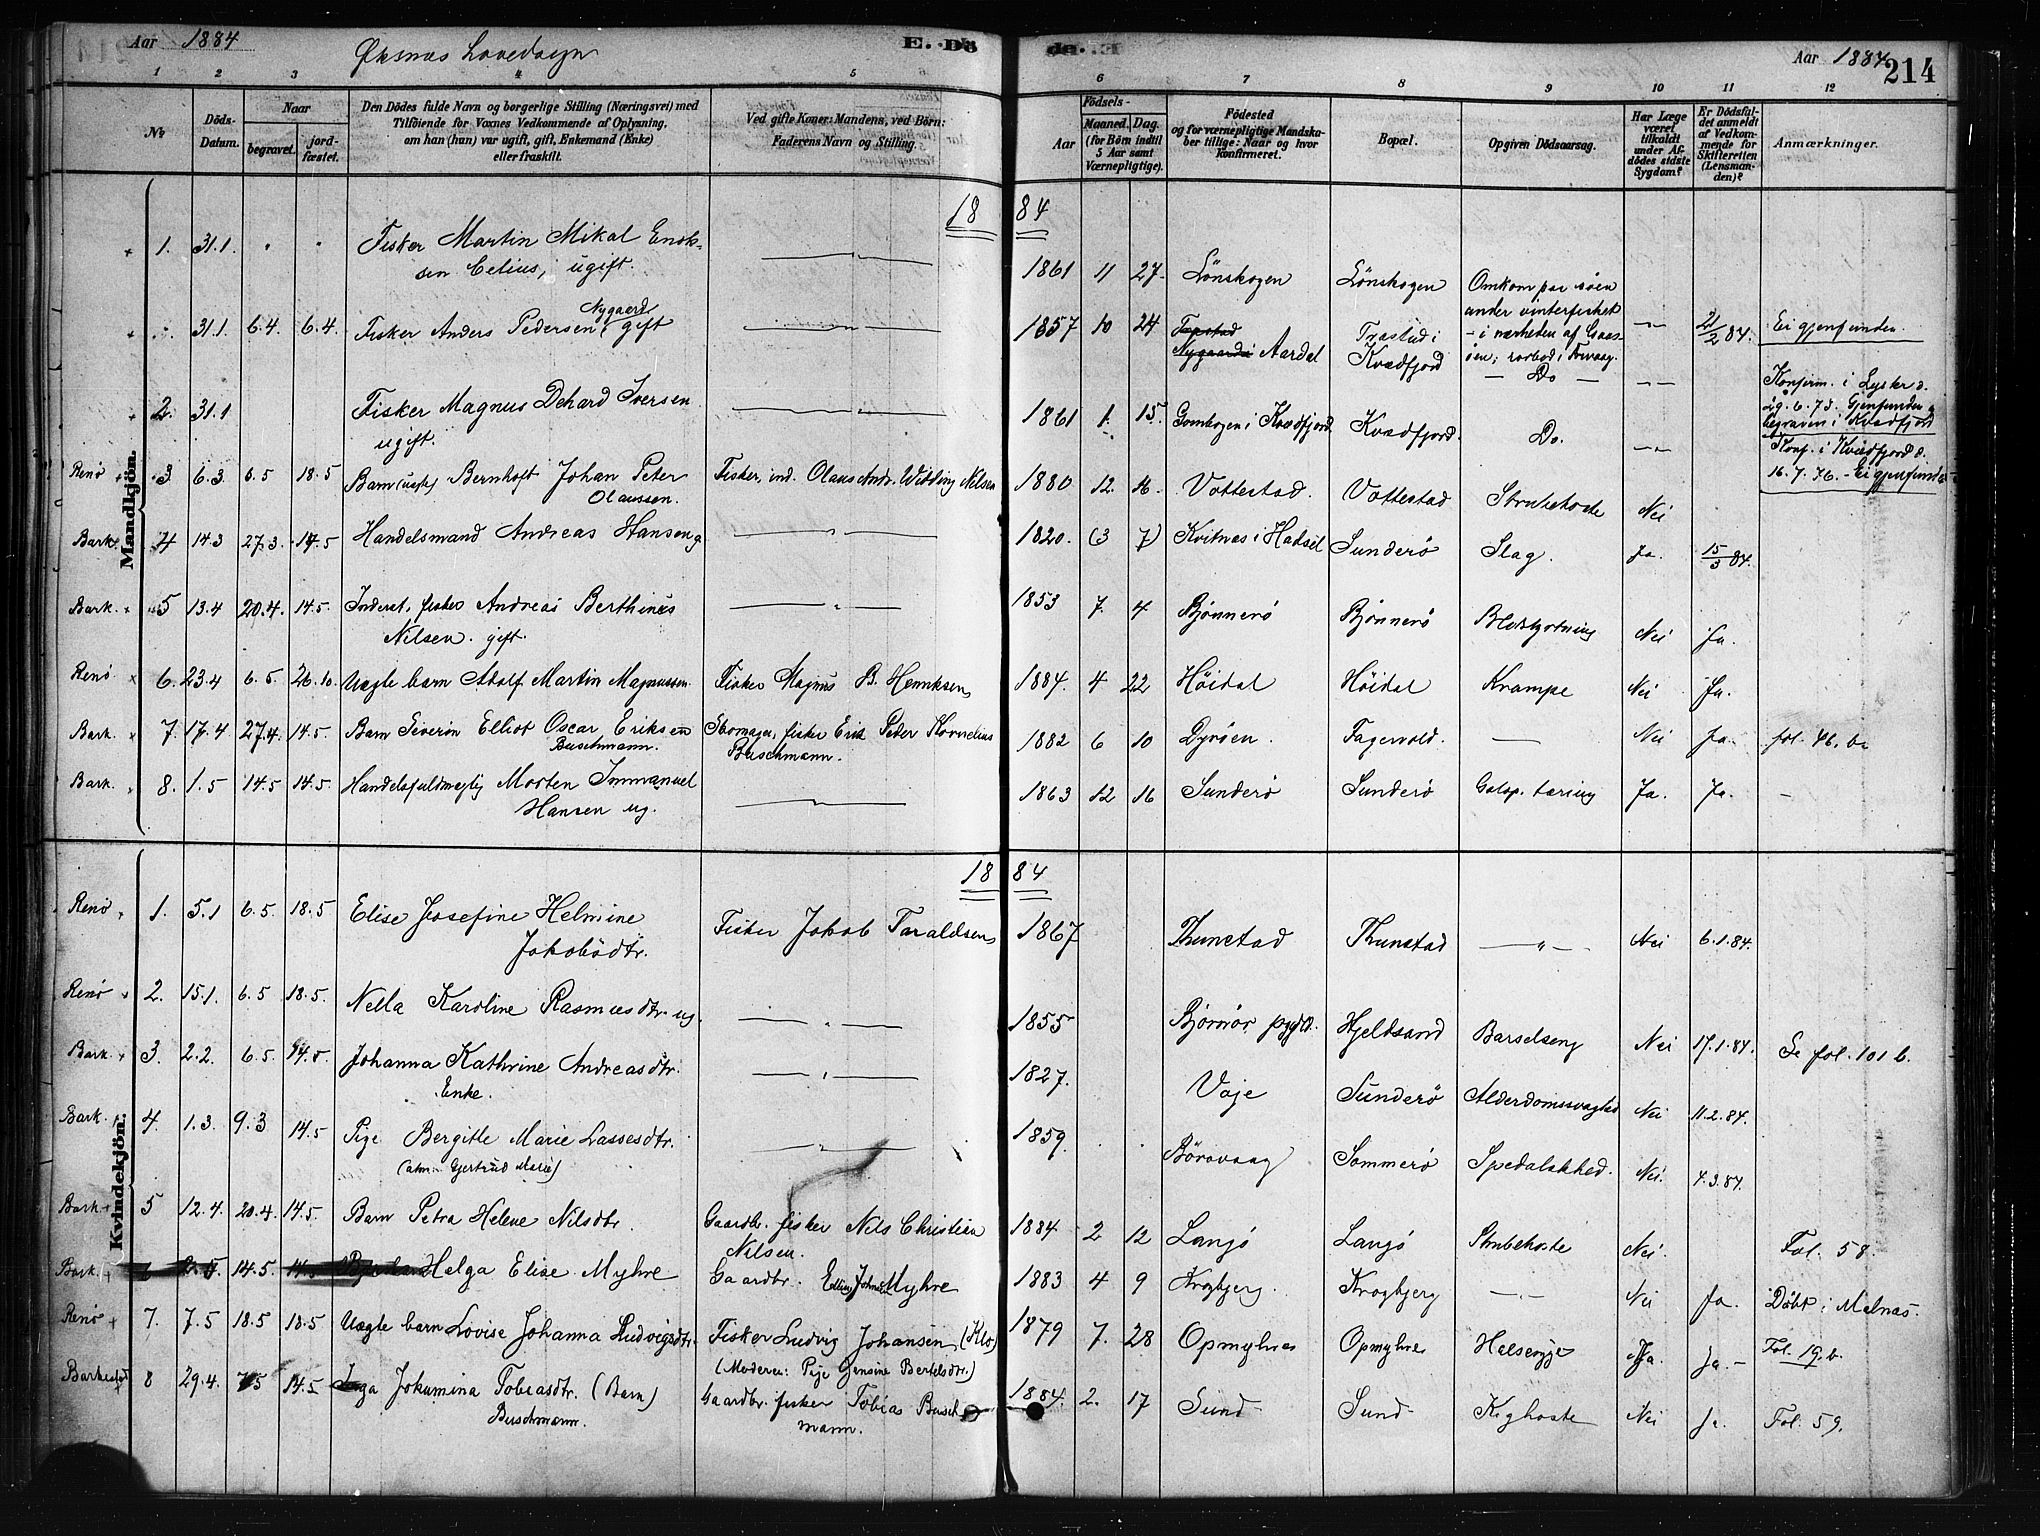 Aar 1884
Øksnes Hovedsogn
E. Dö
de. .E
Aar 1884
214
1 2 3 4 5 6 7 8 9 10 11 12
№
Döds-Datum.
Naar
begravet.
jordfæstet.
Den Dödes fulde Navn og borgerlige Stilling (Næringsvei) med
Tilföiende for Voxnes Vedkommende af Oplysning,
om han (hun) var ugift, gift, Enkemand (Enke)
eller fraskilt.
Ved gifte Koner: Mandens, ved Börn:
Faderens Navn og Stilling.
Födsels-
Aar
Maaned. Dag.
(for Börn indtil
5 Aar samt
Værnepligtige).
Födested
og for værnepligtige Mandska-
ber tillige: Naar og hvor
konfirmeret.
Bopæl.
Opgiven Dödsaarsag.
Har Læge
været
tilkaldt
under Af-
dödes sidste
Sygdom?
Er Dödsfal-
det anmeldt
af Vedkom-
mende for
Skifteretten
(Lensman-
den)?
Anmærkninger.
Mandkjön.
18 84
1. 31.1 " " Fisker Martin Mikal Enok-
sen Celius, ugift. 1861 11 27. Lönskogen Lönskogen Omkom paa söen
under vinterfisket
- i nærheden af Gaas-
öen; rorbod i Forvaag.
31.1 6.4. 6.4. Fisker Anders Pedersen Nygaard gift 1857 10 24 Aardal Trastad i
Kvædfjord - Do - 2/2 84. Ei gjenfunden.
Konfirm. i Lyster d.
29.6.73. Gjenfunden &
begraven i Kvædfjord
2. 31.1 Fisker Magnus Dehard Iversen
ugift. 1861 1. 15. i Kvædfjord Kvædfjord. Do. Konf. i Kvædfjord d.
16.7.76. - Ei gjenfunden
Renö 3 6.3. 6.5 18.5 Barn (uægte) Bernhoft Johan Peter
Olaussen. Fisker, ind. Olaus Andr. Widding Nilsen 1880 12. 16. Vottestad. Vottestad Strubehoste Nei
Bark. 4 14.3 27.3. 14.5 Handelsmand Andreas Hansen g 1820. (3 7) Kvitnes i Hadsel Sunderö Slag. Ja. 15/3 84.
Bark. 5 13.4 20.4. 14.5. Inderst, fisker Andreas Berthinus
Nilsen. gift. 1853 7. 4 Björnerö Björnerö Blodstyrtning Nei Ja.
Renö 6. 23.4 6.5. 26.10. Uægte barn Adolf Martin Magnussen Fisker Magnus B. Henriksen 1884. 4 22 Höidal Höidal Krampe Nei Ja.
Bark. 7. 17.4 27.4. 14.5. Barn Severin Elliot Oscar Eriksen
Buschmann. Skomager, fisker Erik Peter Kornelius
Buschmann. 1882 6 10 Dyröen. Fagervold. Nei Ja. fol. 46. b
Bark. 8. 1.5 14.5 14.5. Handelsfuldmegtig Morten Immanuel
Hansen ug. 1863 12 16 Sunderö Sunderö Galop. tæring Ja. Ja. -
Kvindekjön.
18 84
Renö 1. 5.1 6.5. 18.5 Elise Josefine Helmine
Jakobsdtr. Fisker Jakob Taraldsen 1867 Thunstad Thunstad Nei 6.1.84.
Renö 2. 15.1. 6.5 18.5. Nella Karoline Rasmusdtr. ug. 1855 Björnör pgjd. Hjeldsand Barselseng Nei 17.1.84. Se fol. 101 b.
Bark. 3. 2.2. 6.5. 14.5. Johanna Kathrine Andreasdtr.
Enke. 1827. Vaje Sunderö Alderdomssvaghed Nei 11.2.84.
Bark. 4 1.3. 9.3 14.5 Pige Bergitte Marie Lassesdtr.
(alm. Gjertrud Marie) 1859. Börövaag Sommerö Spedalskhed. Nei. 4.3.84.
Bark. 5 12.4. 20.4. 14.5. Barn Petra Helene Nilsdtr. Gaardbr. fisker Nils Christian
Nilsen. 1884 2 12 Langö Langö Strubehoste Nei. Fol. 58.
Bark. 14.5. Helga Elise Myhre Gaardbr. Myhre 1883 4 9 Krogbjerg. Krogbjerg Nei Ja. Döbt i Melnæs.
Renö 7. 7.5 18.5 18.5 Uægte barn Lovise Johanna Ludvigsdtr. Fisker Ludvig Johansen (Klo)
(Moderen: Pige Jensine Bertelsdtr.) 1879 7. 28 Opmyhre Opmyhre Halsesyge Ja. Ja. - Fol. 19. b.
Barkestad 8 29.4. 14.5 Inga Jokumina Tobiasdtr. (Barn)
Buschmann. Gaardbr. fisker Tobias Busch-
mann. 1884. 2. 17 Sund Sund Kighoste Nei Ja. Fol. 59.